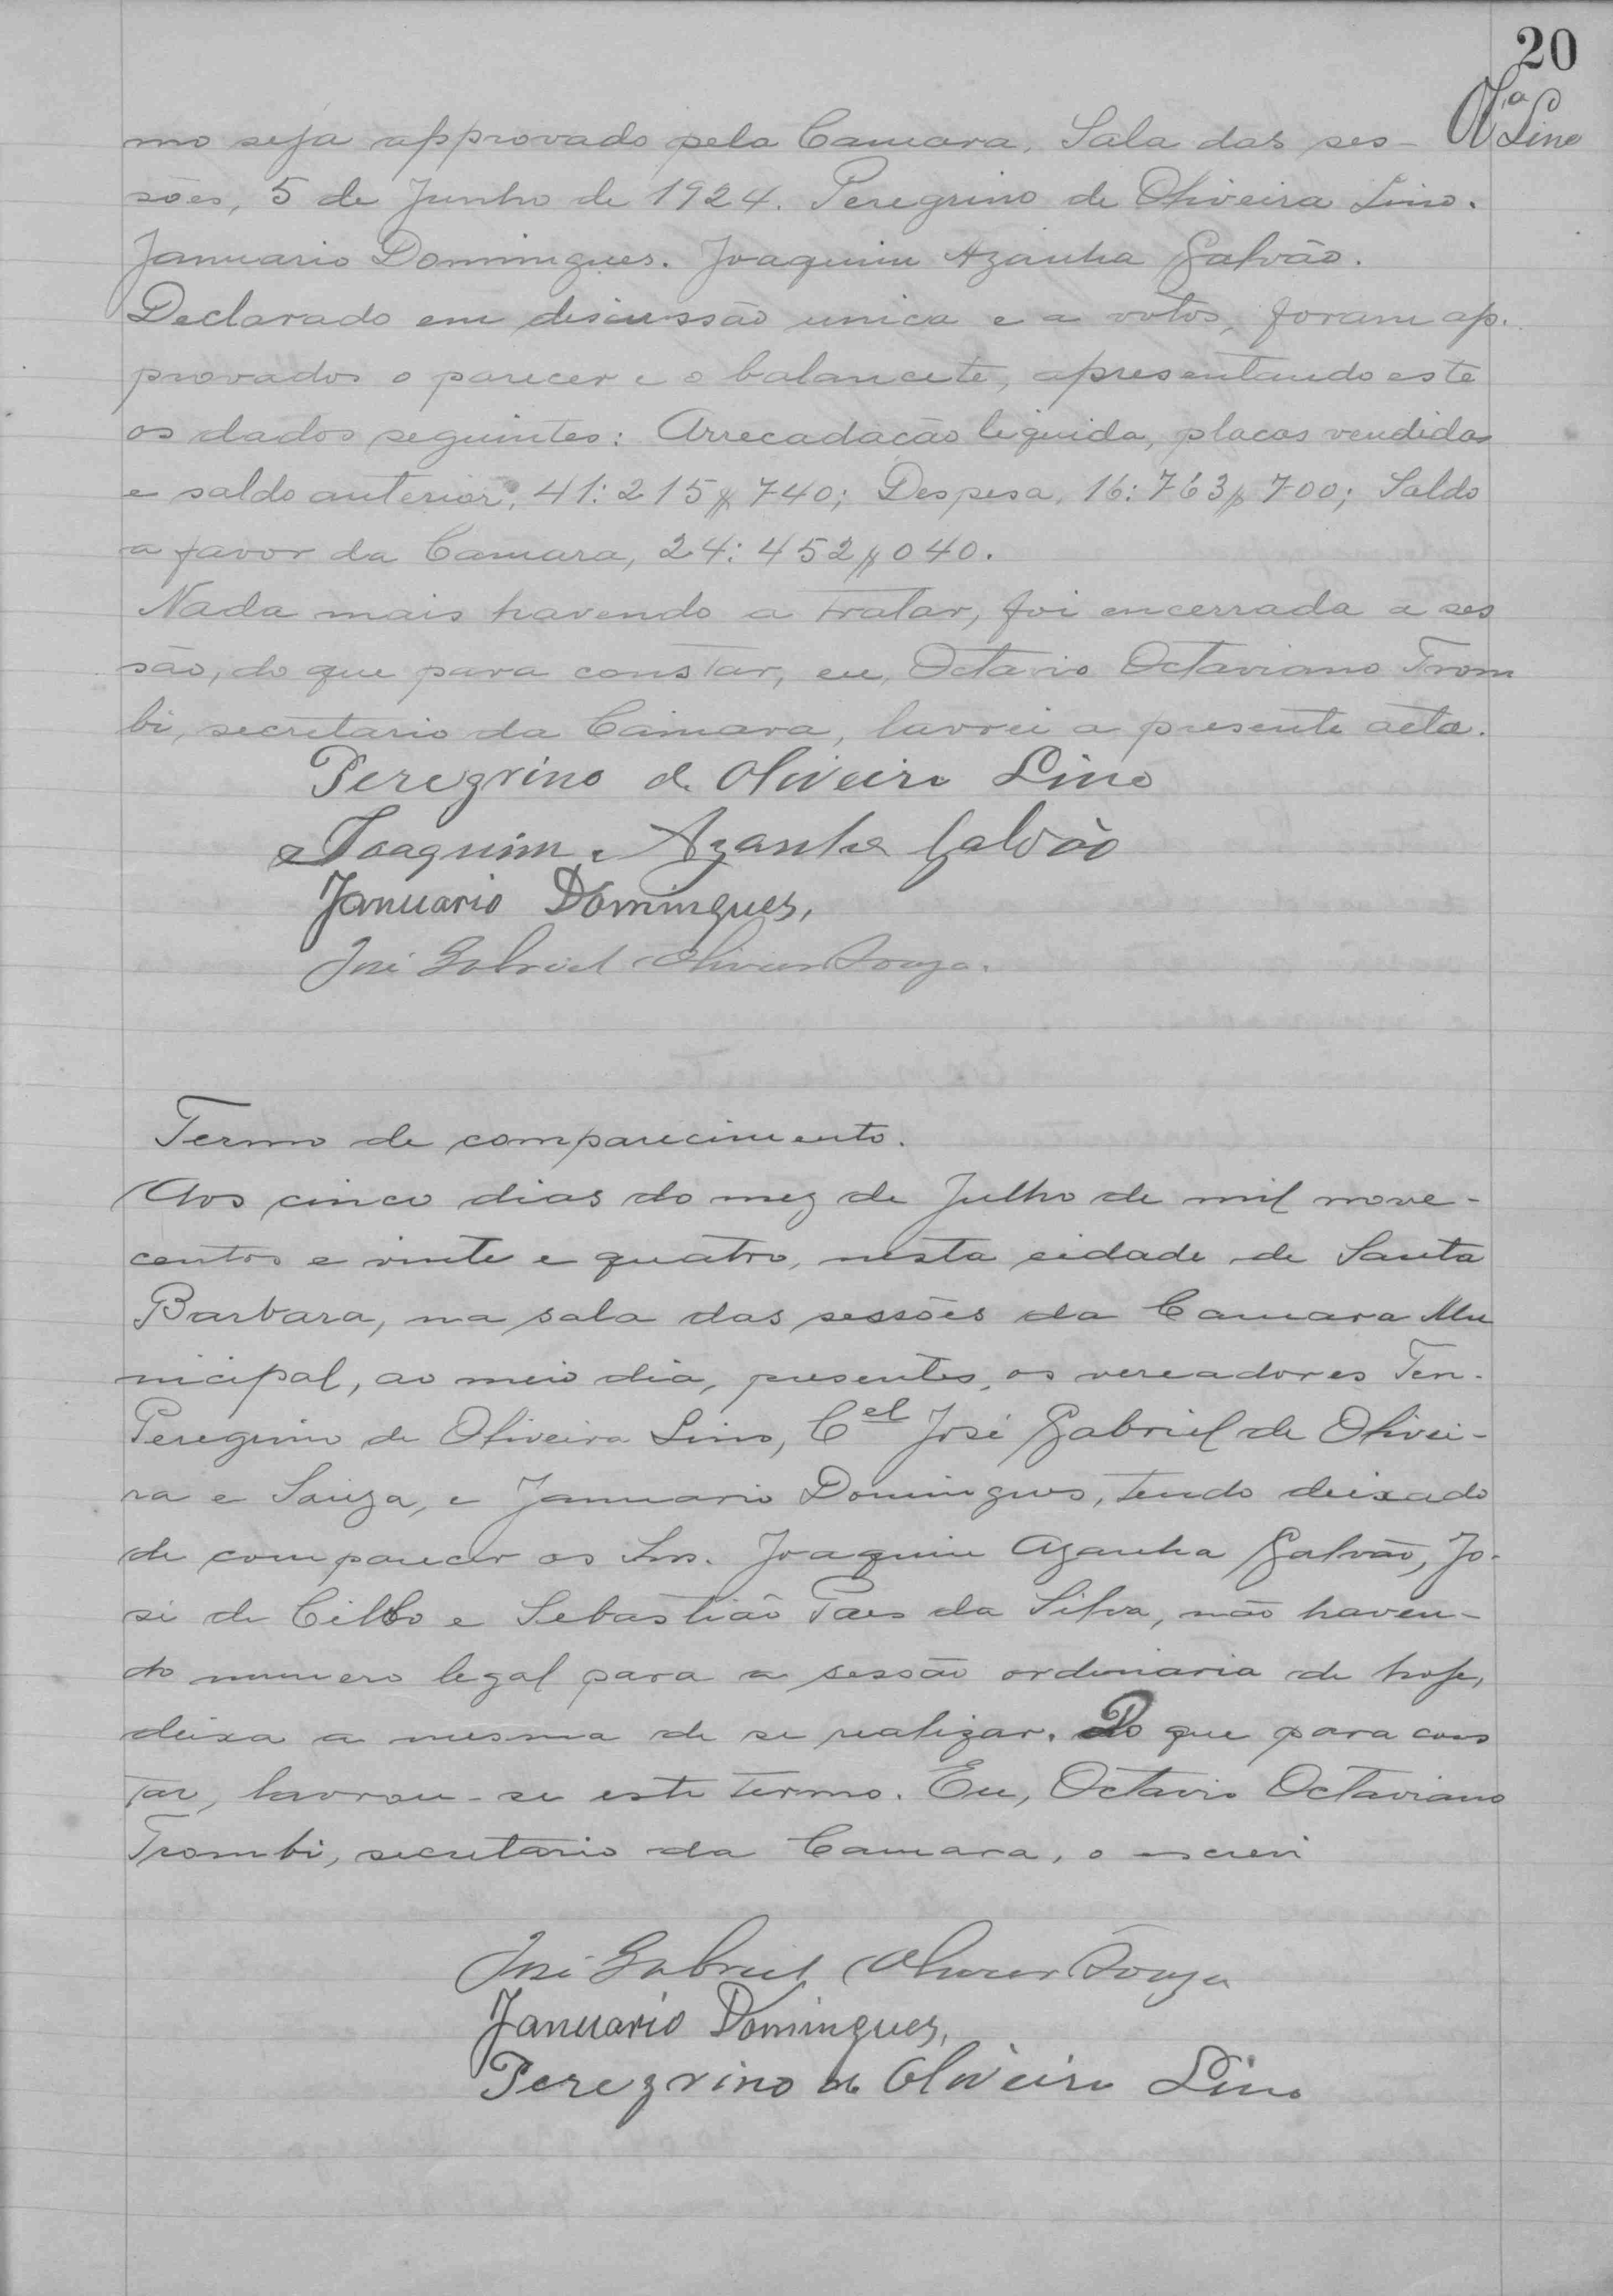 20
Olª Lino
mo seja approvado pela Camara. Sala das ses-
sões, 5 de Junho de 1924. Peregrino de Oliveira Lino.
Januario Domingues. Joaquim Azanha Galvão.
Declarado em discussão unica e a votos, foram ap-
provados o parecer e o balancete, apresentando este
os dados seguintes: Arrecadação liquida, placas vendidas
e saldo anterior, 41:215$740; Despesa, 16:763$700; Saldo
a favor da Camara, 24:452$040.
Nada mais havendo a tratar, foi encerrada a ses
são, do que para constar, eu, Octavio Octaviano Trom
bi, secretario da Camara, lavrei a presente acta.
Peregrino de Oliveira Lino
Joaquim Azanha Galvão
Januario Domingues,
José Gabriel Oliveira Souza.
Termo de comparecimento.
Aos cinco dias do mez de Julho de mil nove-
centos e vinte e quatro, nesta cidade de Santa
Barbara, na sala das sessões da Camara Mu
nicipal, ao meio dia, presentes, os vereadores Ten.
Peregrino de Oliveira Lino, Cel José Gabriel de Olivei-
ra e Souza, e Januario Domingues, tendo deixado
de comparecer os Snrs. Joaquim Azanha Galvão, Jo-
sé de Cillo e Sebastião Paes da Silva, não haven-
do numero legal para a sessão ordinaria de hoje,
deixa a mesma de se realizar. Do que para cons
tar, lavrou-se este termo. Eu, Octavio Octaviano
Trombi, secretario da Camara, o escrevi
José Gabriel Oliveira Souza
Januario Domingues,
Peregrino de Oliveira Lino